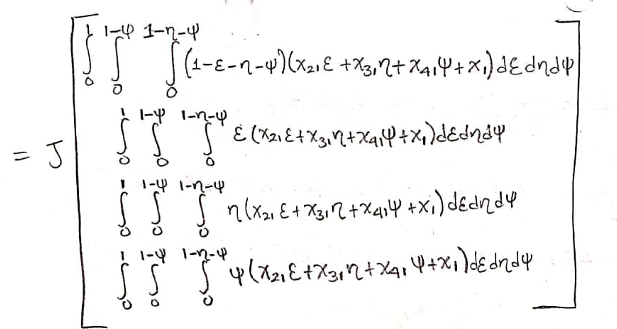 ∫₀¹ ∫₀^{1-ψ} ∫₀^{1-η-ψ} (1-ε-η-ψ)(x₂₁ε+x₃₁η+x₄₁ψ+x₁)dεdηdψ
= J ∫₀¹ ∫₀^{1-ψ} ∫₀^{1-η-ψ} ε(x₂₁ε+x₃₁η+x₄₁ψ+x₁)dεdηdψ
∫₀¹ ∫₀^{1-ψ} ∫₀^{1-η-ψ} η(x₂₁ε+x₃₁η+x₄₁ψ+x₁)dεdηdψ
∫₀¹ ∫₀^{1-ψ} ∫₀^{1-η-ψ} ψ(x₂₁ε+x₃₁η+x₄₁ψ+x₁)dεdηdψ